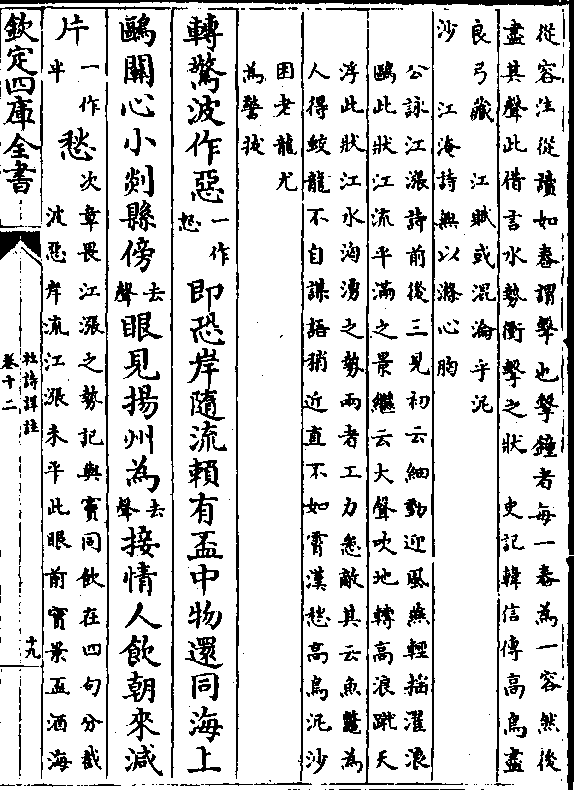 從容注從讀如舂謂擊也擊鐘者每一舂為一容然後
盡其聲此借言水勢衝擊之狀　史記韓信傳高鳥盡
良弓藏　江賦或混淪乎泥
沙　江淹詩無以滌心胸
公詠江漲詩前後三見初云細動迎風燕輕搖濯浪
鷗此狀江流平滿之景繼云大聲吹地轉高浪蹴天
浮此狀江水洶湧之勢兩者工力悉敵其云魚鼈為
人得蛟龍不自謀語稍近直不如霄漢愁高鳥泥沙
困老龍尤
為警拔
轉驚波作惡一作怒即恐岸隨流賴有盃中物還同海上
鷗關心小剡縣傍去聲眼見揚州為去聲接情人飲朝來減
片一作半愁
次章畏江漲之勢記與竇同飲在四句分截
波惡岸流江漲未平此眼前實景盃酒海
欽定四庫全書
杜詩詳註
卷十二
十九